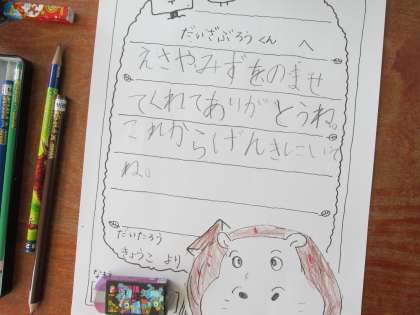 だいざぶろうくん へ
えさやみずをのませ
てくれてありがとうね。
これからげんきにいて
ね。
だいたろう
きょうこ より
なまえ